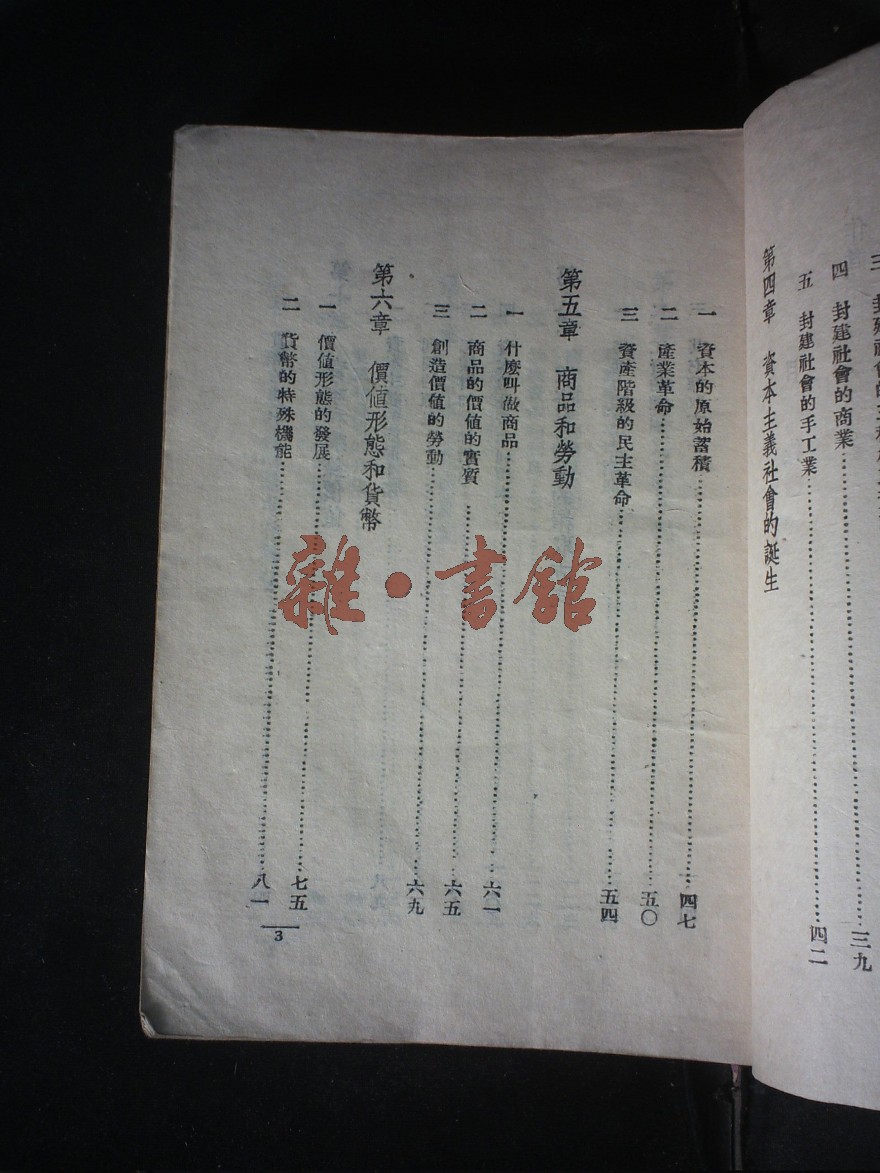 四 封建社會的商業……三九
五 封建社會的手工業……四二
第四章 資本主義社會的誕生
一 資本的原始蓄積……四七
二 產業革命……五〇
三 資產階級的民主革命……五四
第五章 商品和勞動
一 什麼叫做商品……六一
二 商品的價值的實質……六五
三 創造價值的勞動……六九
第六章 價值形態和貨幣
一 價值形態的發展……七五
二 貨幣的特殊機能……八一
3
雜·書館